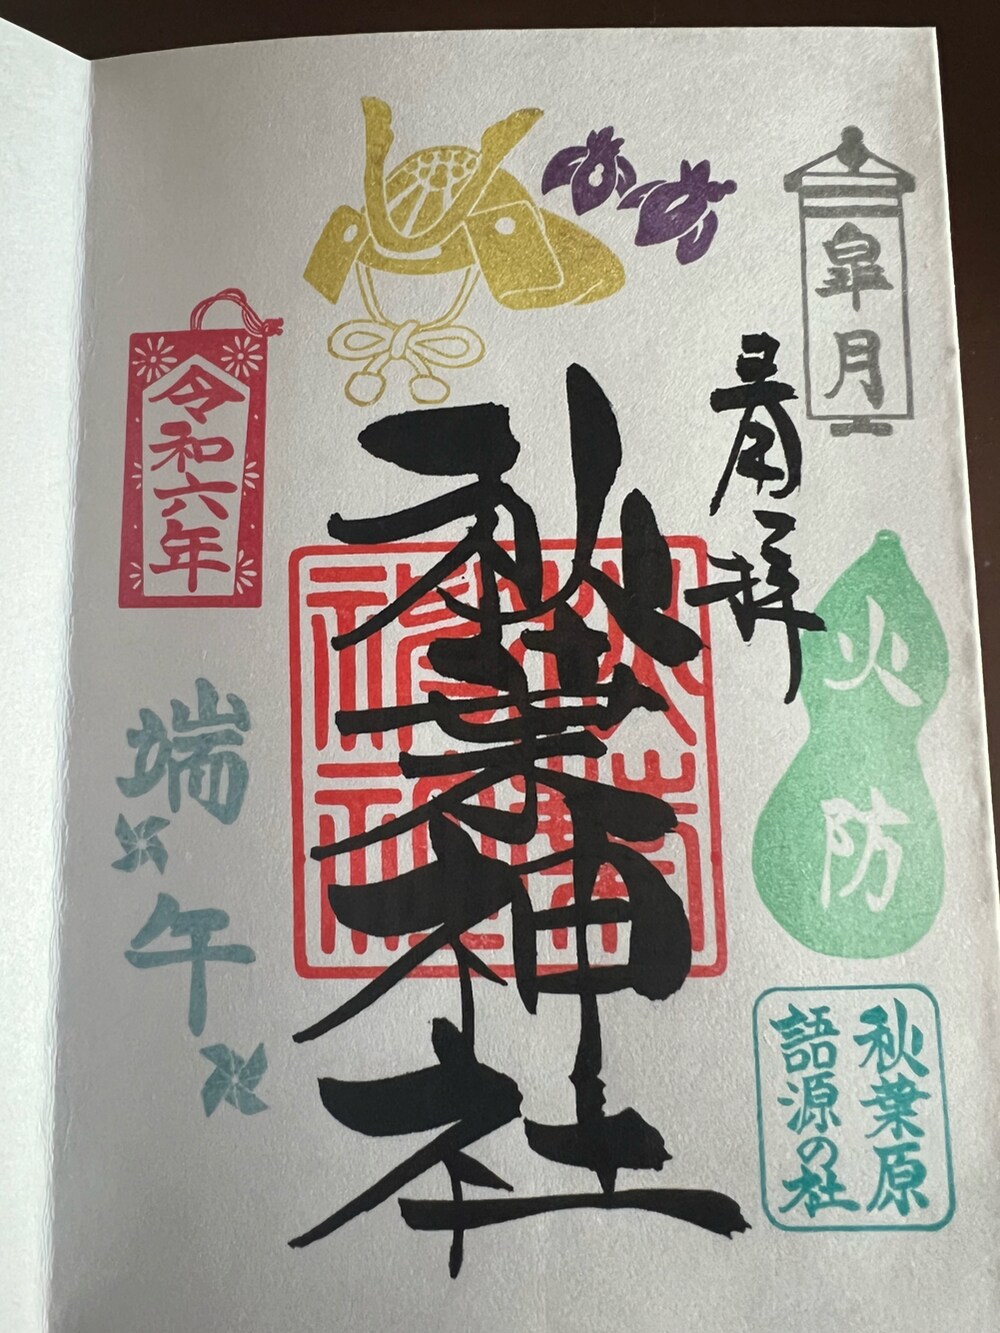 皐月
奉拝
火防
秋葉原
語源の社
秋葉神社
秋葉
神社
令和六年
端午